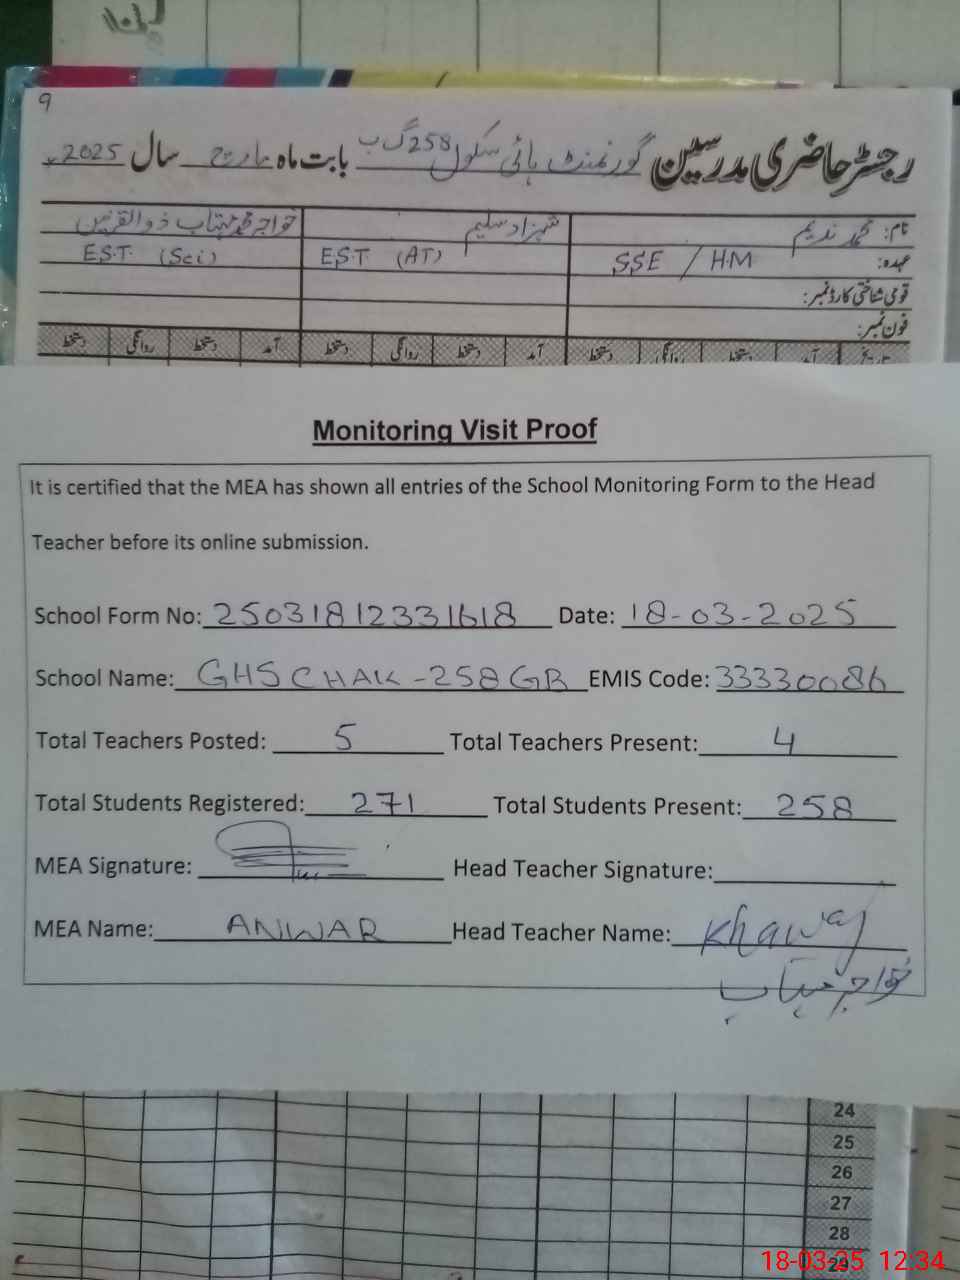 9
رجسٹر حاضری مدرسین گورنمنٹ ہائی سکول 258 گ ب بابت ماہ مارچ سال 2025ء
نام: محمد ندیم شہزاد سلیم خواجہ محمد مہتاب ذوالقرنین
عہدہ: SSE / H.M E.S.T (AT) E.S.T. (Sci)
قومی شناختی کارڈ نمبر:
فون نمبر:
تاریخ آمد دستخط روانگی دستخط آمد دستخط روانگی دستخط آمد دستخط روانگی دستخط
Monitoring Visit Proof
It is certified that the MEA has shown all entries of the School Monitoring Form to the Head
Teacher before its online submission.
School Form No: 25031812331618 Date: 18-03-2025
School Name: GHS CHAK-258 GB EMIS Code: 33330086
Total Teachers Posted: 5 Total Teachers Present: 4
Total Students Registered: 271 Total Students Present: 258
MEA Signature: Head Teacher Signature:
MEA Name: ANWAR Head Teacher Name: Khawaj
خواجہ مہتاب
24
25
26
27
28
29
18-03-25 12:34